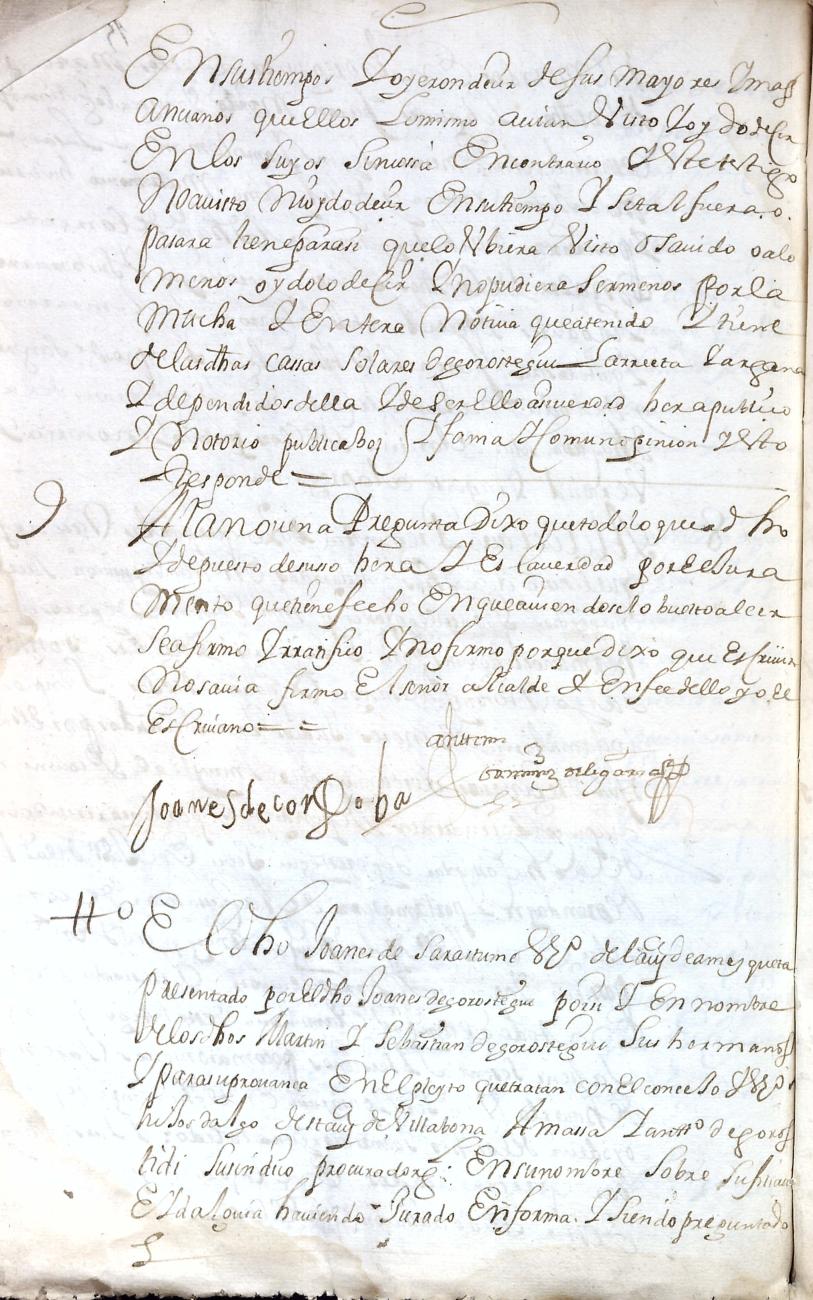 En sus tiempos Y oyeron decir de sus mayores Y mas
ancianos que Ellos Lo mismo avian Visto Y oydo decir
En los suyos sin cossa En contrario Y Este testigo
No a visto Ni oydo decir En su tiempo Y si tal fuera o
pasara tiene para si que lo Ubiera Visto o savido o alo
menos oydolo decir Y no pudiera ser menos por la
mucha Y Entera Noticia que a tenido Y tiene
de las dhas cassas solares de gorostegui Larreeta Y argana
Y dependidos della Y de ser Ello ansi verdad hera publico
Y Notorio publica boz Y fama Y Comun opinion Y Esto
Responde =
9 A la novena Pregunta Dixo que todo lo que a dho
Y depuesto de suso hera Y Es la verdad por el Jura
mento que tiene fecho En que aviendoselo buelto a leer
se afirmo Y rratifico Y no firmo porque dixo que Escrivir
No savia firmo El señor alcalde Y En fee dello yo el
Escrivano = =
ante mi
Joanes de cordoba
Ho El dho Joanes de Sarastume Vzo de la Va de amezqueta
presentado por El dho Joanes de gorostegui por si Y En nombre
de los dhos Martin Y Sebastian de gorostegui sus hermanos
Y para su provança En El pleyto que tratan con El concejo Y Vzos
hijosdalgo de sta Va de Villabona Amassa Y antto de goros
tidi su sindico procurador g: En su nombre sobre su filiacion
E Ydalguia haviendo Jurado En forma. Y siendo preguntado